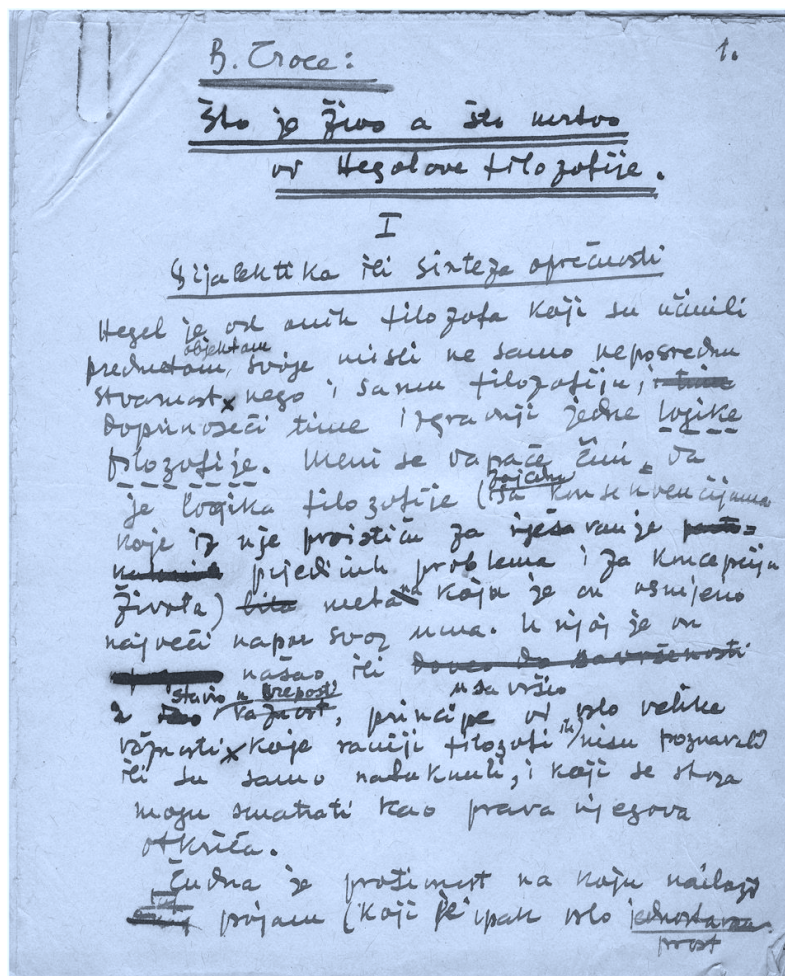 B. Croce:
1.
Što je živo a što mrtvo
od Hegelove filozofije.
I
Dijalektika ili sinteza oprečnosti
Hegel je od onih filozofa koji su učinili
objektom
predmetom svoje misli ne samo neposrednu
stvarnost nego i samu filozofiju, i time
doprinoseći time izgradnji jedne logike
filozofije. Meni se dapače čini, da
zajedno
je logika filozofije (sa konsekvencijama
koje iz nje proističu za rješavanje
pojedinih problema i za koncepciju
života) bila meta na koju je on usmjerio
najveći napor svog uma. U njoj je on
našao ili doveo do savršenosti
usavršio
stavio u krepost
važnost, principe od vrlo velike
važnosti koje raniji filozofi ili nisu poznavali
ili su samo nabuknuli, i koji se stoga
mogu smatrati kao prava njegova
otkrića.
Čudna je protivnost na koju nailazi
pojam (koji je ipak vrlo jednostavan
prost